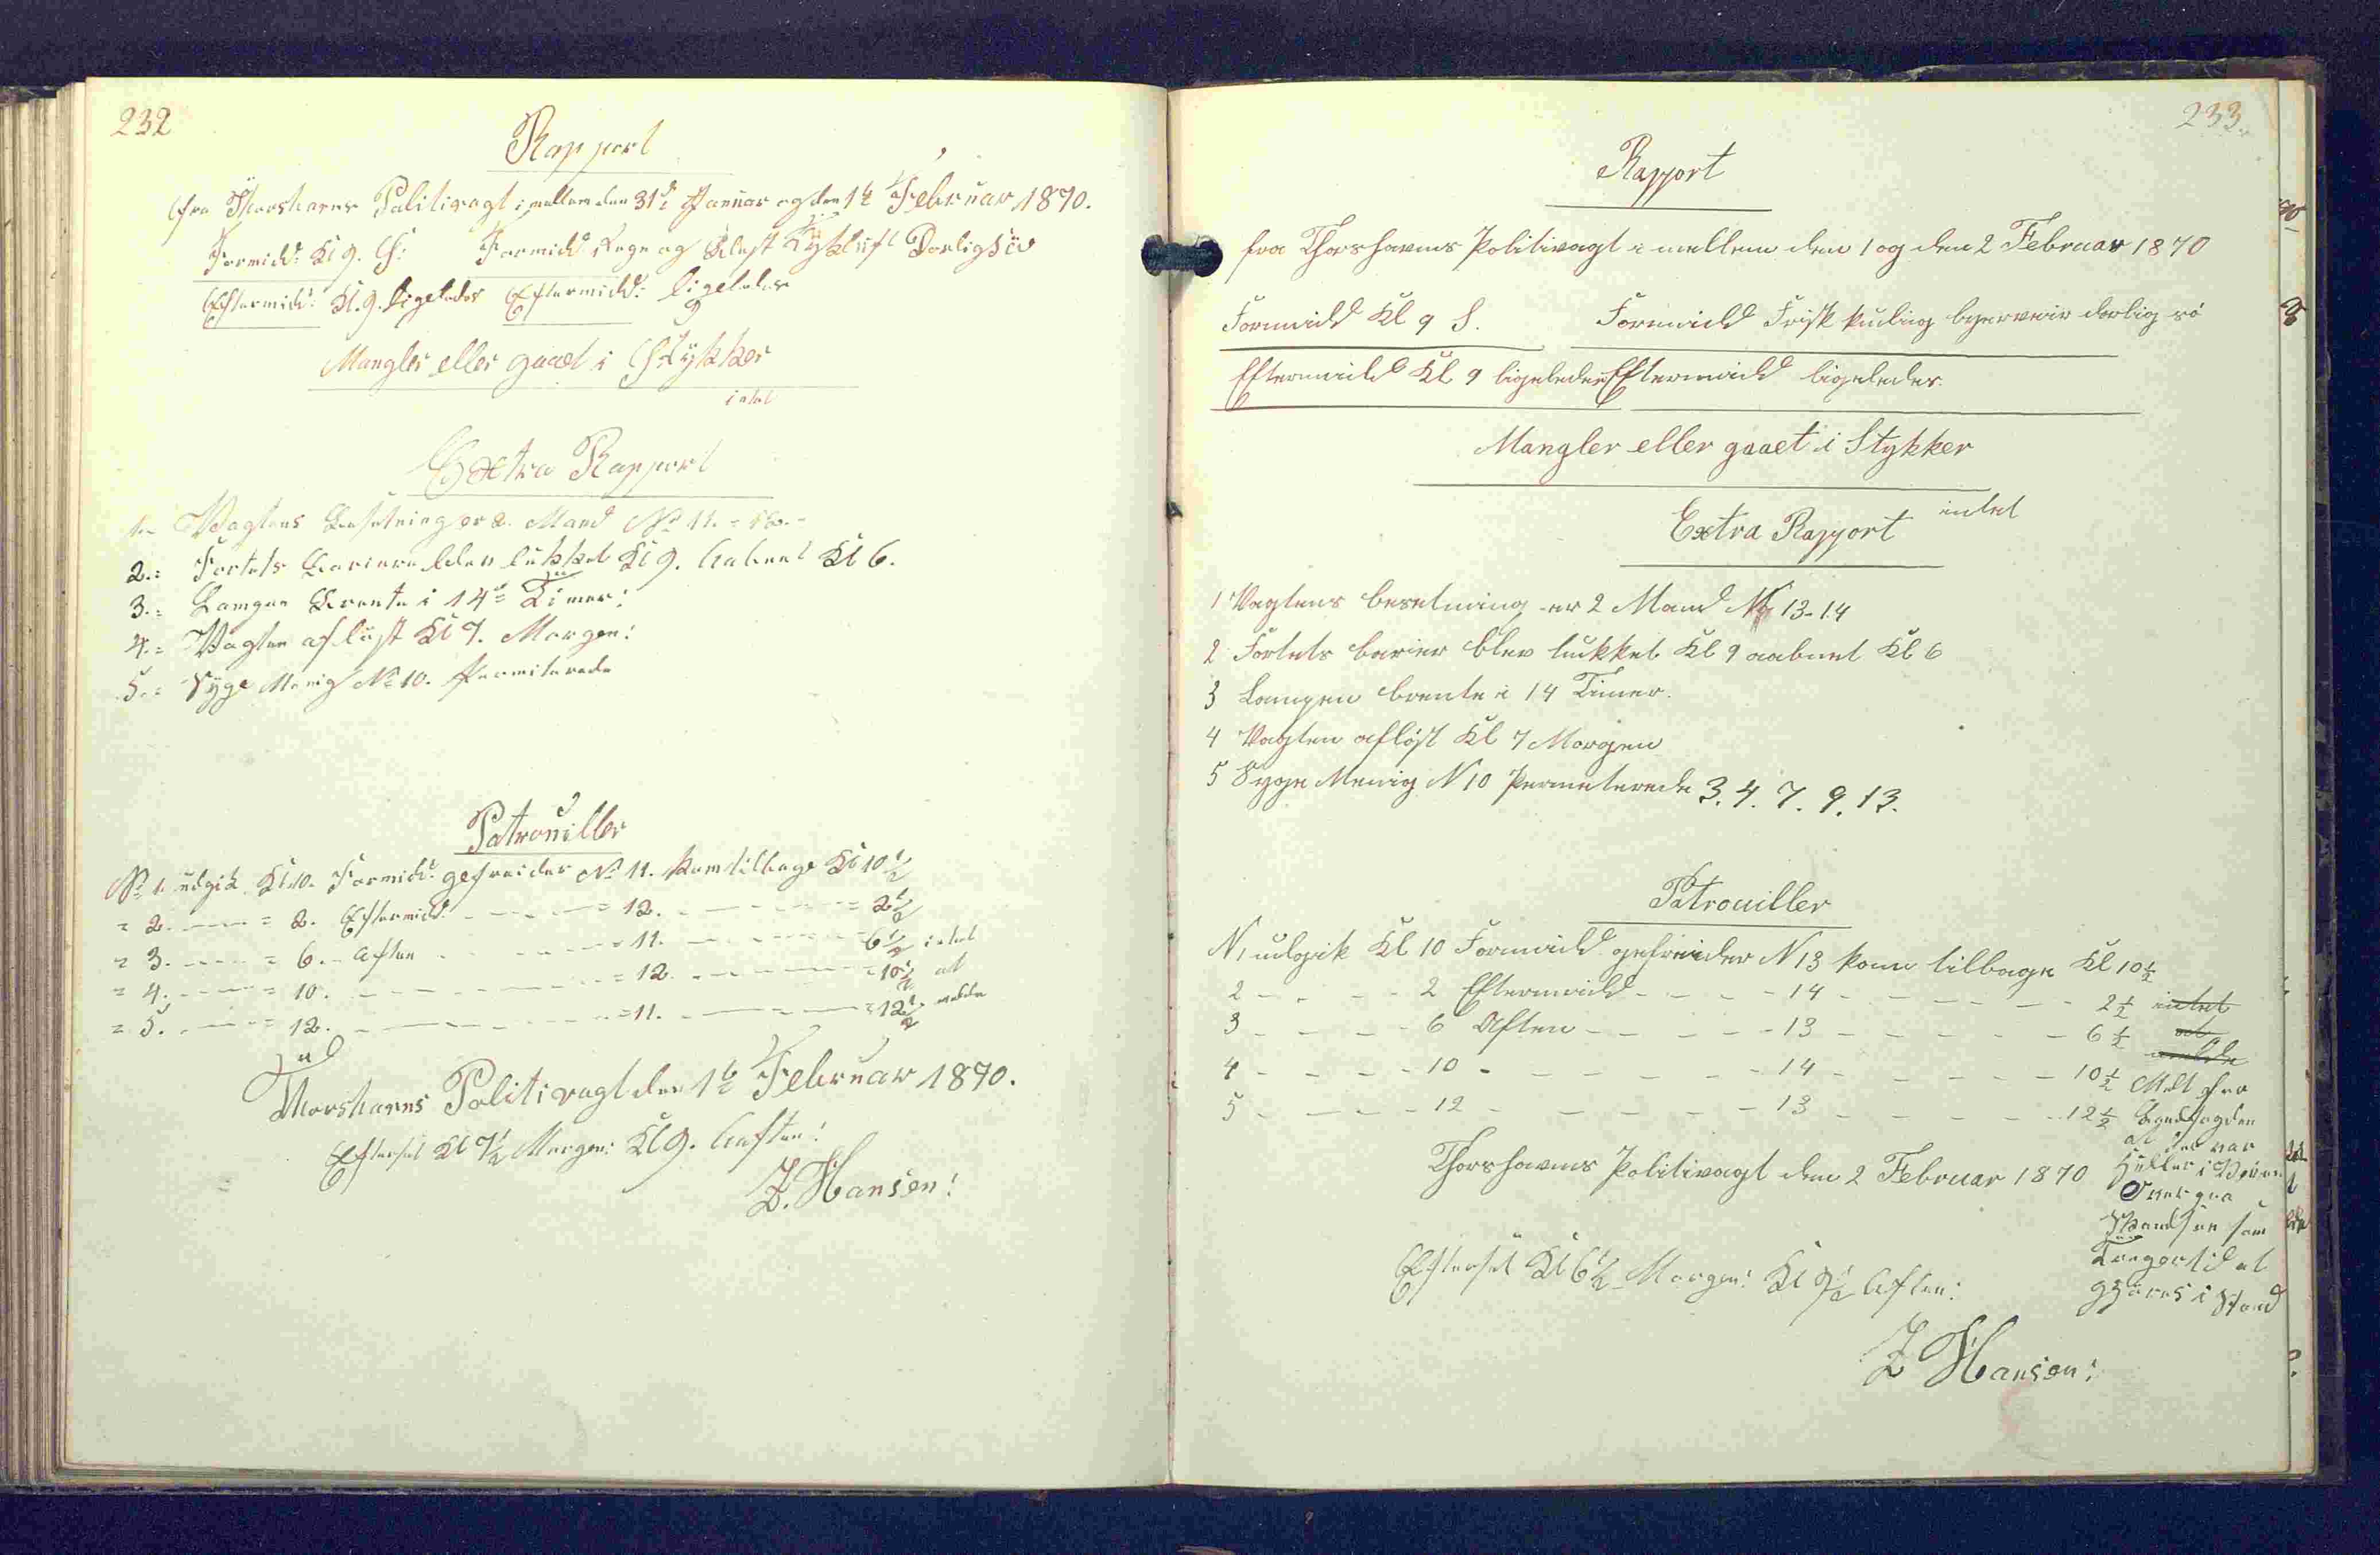 232
Rapport
fra Thorshavns Politivagt i mellem den 31d Januar og den 1t Februar 1870.
Formidd: Kl 9. S: Formidd: Regn og Blæst Tyklúft Dorlig Sü
Eftermidd: Kl. 9. ligeledes Eftermidd: ligeledes
Mangler eller gaaet i Stykker
intet
Extra Rapport
1.= Vagtens Besetning er 2. Mand No 11. = 12.=
2.= Fortets Bariere blev lukket Kl 9. Aabnet Kl 6.
3.= Lampen Brente i 14 Timer:
4.= Vagten afløst Kl 7. Morgen:
5.= Syge Menig No 10. Permiterede
Patrouiller
No 1. udgik Kl 10. Formidd: gefreider No 11. kom tilbage Kl 10 1/2
= 2. = 2. Eftermidd: = 12. = 2 1/2
= 3. = 6. Aften = 11. 6 1/2 intet
= 4. = 10. = 12. = 10 1/2 at
= 5. = 12. = 11. = 12 1/2 melde
Thorshavns Politivagt den 1t Februar 1870.
Efterset Kl 7 1/2 Morgen: Kl 9. Aften:
Z. Hansen:
233.
Rapport
fra Thorshavns Politivagt i mellem den 1 og den 2 Februar 1870
Formidd Kl 9 S. Formidd Frisk kuling byerveir dorlig sö
Eftermidd Kl 9 ligeledes Eftermidd ligeledes.
Mangler eller gaaet i Stykker
intet
Extra Rapport
1 Vagtens besetning er 2 Mand No 13-14
2 Fortets barier blev lukket Kl 9 aabnet Kl 6
3 Lampen brente i 14 Timer.
4 Vagten afløst Kl 7 Morgen
5 Syge Menig N 10 Permeterede 3. 4. 7. 9. 13.
Patrouiller
N 1 udgik Kl 10 Formidd gefreider N 13 kom tilbage Kl 10 1/2
2 - - - 2 Eftermidd - - - 14 - - - 2 1/2 intet
3 - - - 6 Aften - - - 13 - - - 6 1/2 at
4 - - - 10 - - - 14 - - - 10 1/2 melde
5 - - - 12 - - - 13 - - - 12 1/2
Melt fra
at der var
Huller i
Skandsen som
Trenger til at
gjøres i Stand
Thorshavns Politivagt den 2 Februar 1870
Efterset Kl 6 1/2 Morgen: Kl 9 1/2 Aften:
Z Hansen: